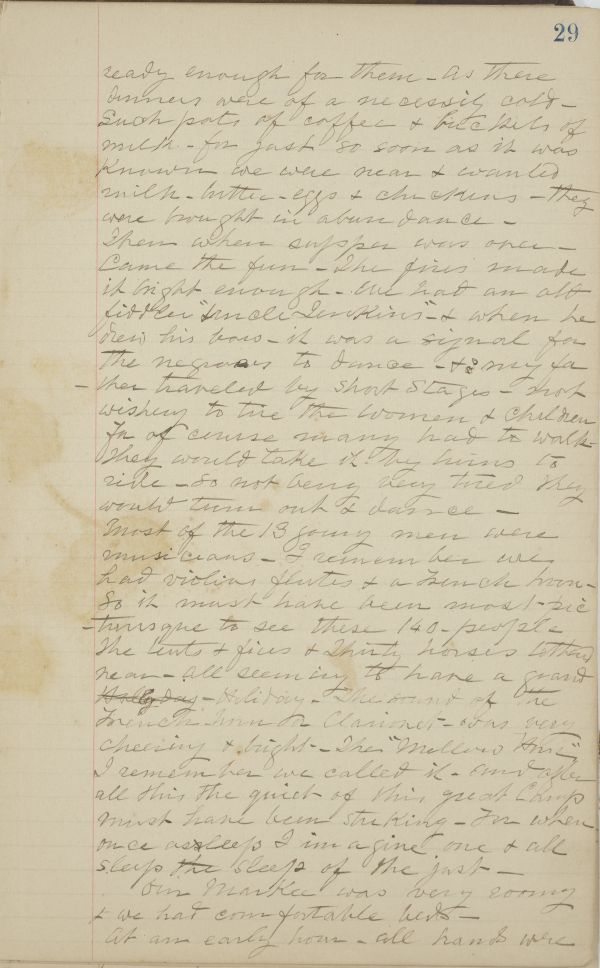 29
ready enough for them - as there
dinners were of a necessity cold -
Such pots of coffee & buckets of
milk - for just so soon as it was
Known we were near & wanted
milk - butter - eggs & chickens - they
were brought in abundance -
Then when supper was over -
Came the fun - The fires made
it bright enough - We had an old
fiddler "Uncle Jenkins" - & when he
drew his bow - it was a signal for
the negroes to dance - & as my fa
- ther traveled by short Stages - not
wishing to tire the women & children
For of course many had to walk -
They would take it by turns to
ride - So not being very tired they
would turn out & dance -
Most of the 13 young men were
musicians - I remember we
had violins flutes & a French horn -
So it must have been most pic
- turesque to see these 140 - people -
The tents & fires & Thirty horses tethered
near - all seeming to have a grand
Hollyday - Holiday - The sound of the
French horn or Clarionet - was very
cheering & bright - The "Mellow Horn"
I remember we called it - and after
all this the quiet of this great Camp
must have been striking - For when
once asleep I imagine one & all
sleep the sleep of the just -
Our Markee was very roomy
& we had comfortable beds -
At an early hour - all hands were